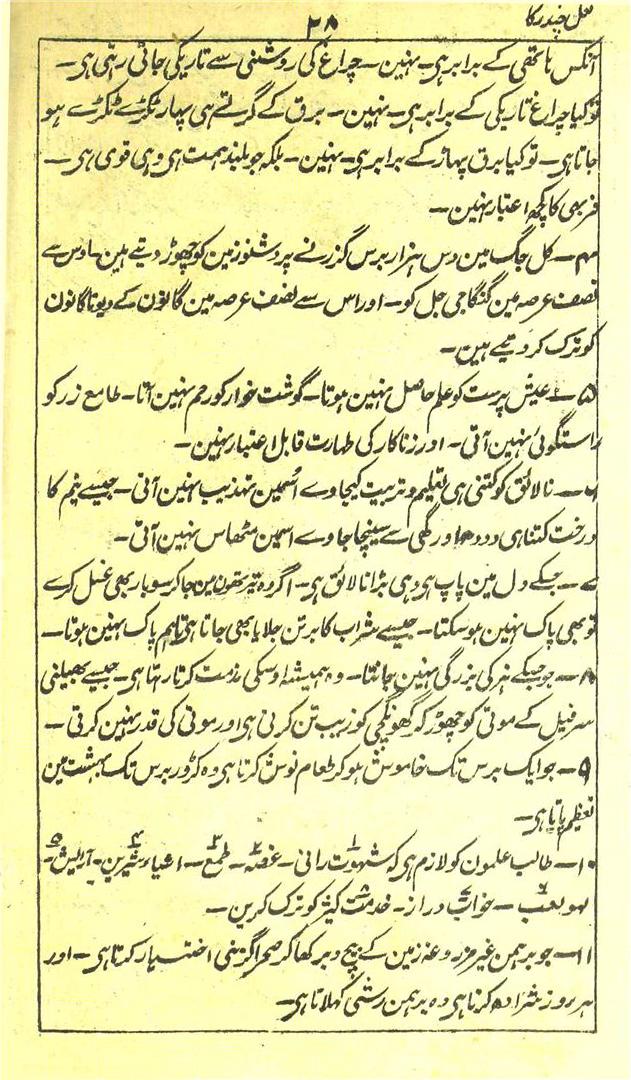 ۲۸
آنکس ہاتھی کے برابر ہی۔ نہین۔ چراغ کی روشنی سے تاریکی جاتی رہتی ہی۔
تو کیا چراغ تاریکی کے برابر ہی۔ نہین۔ برق کے گرتے ہی پہاڑ ٹکڑے ٹکڑے ہو
جاتا ہی۔ تو کیا برق پہاڑ کے برابر ہی۔ نہین۔ بلکہ جو بلند ہمت ہی وہی قوی ہی۔
فربہی کا کچھ اعتبار نہین۔
۴۔ کل جگ مین دس ہزار برس گذرنے پر وشنو زمین کو چھوڑ دیتے ہین۔ اوس سے
نصف عرصہ مین گنگا جی جل کو۔ اور اس سے نصف عرصہ مین گانؤن کے دیوتا گانؤن
کو ترک کر دیتے ہین۔
۵۔ عیش پرست کو علم حاصل نہین ہوتا۔ گوشت خوار کو رحم نہین آتا۔ طامع زر کو
راستگوئی نہین آتی۔ اور زناکار کی طہارت قابل اعتبار نہین۔
۶۔ نالائق کو کتنی ہی تعلیم و تربیت کیجاوے اُسمین تہذیب نہین آتی۔ جیسے نیم کا
درخت کتنا ہی دودھ اور گھی سے سینچا جاوے اسمین مٹھاس نہین آتی۔
۷۔ جسکے دل مین پاپ ہی وہی بڑا نالائق ہی۔ اگر وہ تیرتھون مین جا کر سو بار بھی غسل کرے
تو بھی پاک نہین ہو سکتا۔ جیسے شراب کا برتن جلایا بھی جاتا ہی تاہم پاک نہین ہوتا۔
۸۔ جو جسکے ہنر کی بزرگی نہین جانتا۔ وہ ہمیشہ اوسکی مذمت کرتا رہتا ہی۔ جیسے بھیلنی
سر فیل کے موتی کو چھوڑ کر گھونگچی کو زیب تن کرتی ہی اور موتی کی قدر نہین کرتی۔
۹۔ جو ایک برس تک خاموش ہو کر طعام نوش کرتا ہی وہ کڑور برس تک بہشت مین
تعظیم پاتا ہی۔
۱۰۔ طالب علمون کو لازم ہی کہ شہوت رانی۱۔ غصہ۲۔ طمع۳۔ اشیاء شیرین۴۔ آرایش۵۔
لہو و لعب۶۔ خواب دراز۷۔ خدمت کثیر۸ کو ترک کرین۔
۱۱۔ جو برہمن غیر مزروعہ زمین کے بیج و بر کھا کر صحرا گزینی اختیار کرتا ہی۔ اور
ہر روز شرادہ کرتا ہی وہ برہمن رشی کہلاتا ہی۔